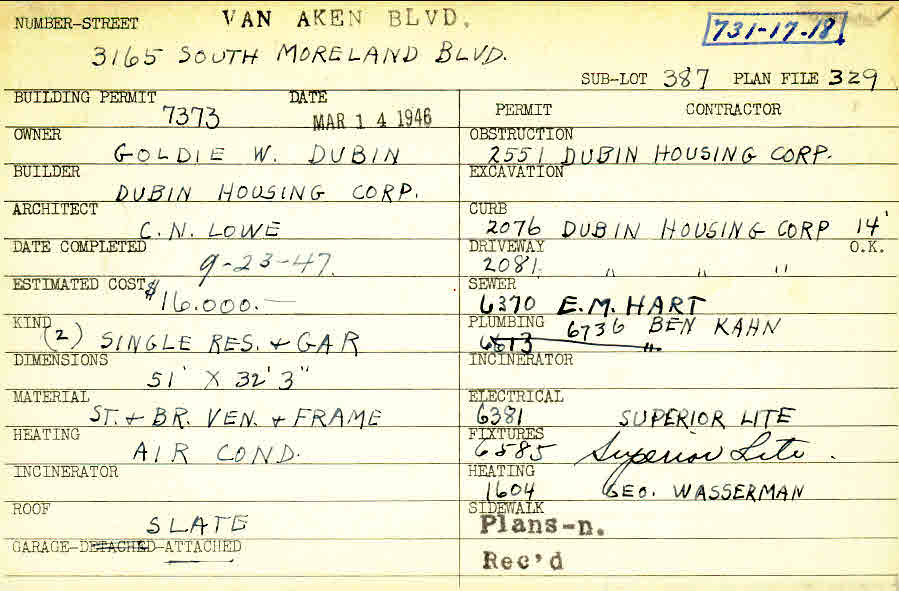 NUMBER-STREET VAN AKEN BLVD. 731-17-18
3165 SOUTH MORELAND BLVD.
SUB-LOT 387 PLAN FILE 329
BUILDING PERMIT 7373 DATE MAR 14 1946
OWNER GOLDIE W. DUBIN
BUILDER DUBIN HOUSING CORP.
ARCHITECT C.N. LOWE
DATE COMPLETED 9-23-47.
ESTIMATED COST $16.000.—
KIND (2) SINGLE RES. + GAR
DIMENSIONS 51' X 32' 3"
MATERIAL ST. + BR. VEN. + FRAME
HEATING AIR COND.
INCINERATOR
ROOF SLATE
GARAGE-DETACHED-ATTACHED
PERMIT CONTRACTOR
OBSTRUCTION 2551 DUBIN HOUSING CORP.
EXCAVATION
CURB 2076 DUBIN HOUSING CORP 14'
DRIVEWAY 2081 " " " O.K.
SEWER 6370 E.M. HART
PLUMBING 6736 BEN KAHN
6613 "
INCINERATOR
ELECTRICAL 6381 SUPERIOR LITE
FIXTURES 6585 Superior Lite.
HEATING 1604 GEO. WASSERMAN
SIDEWALK
Plans-n.
Rec'd